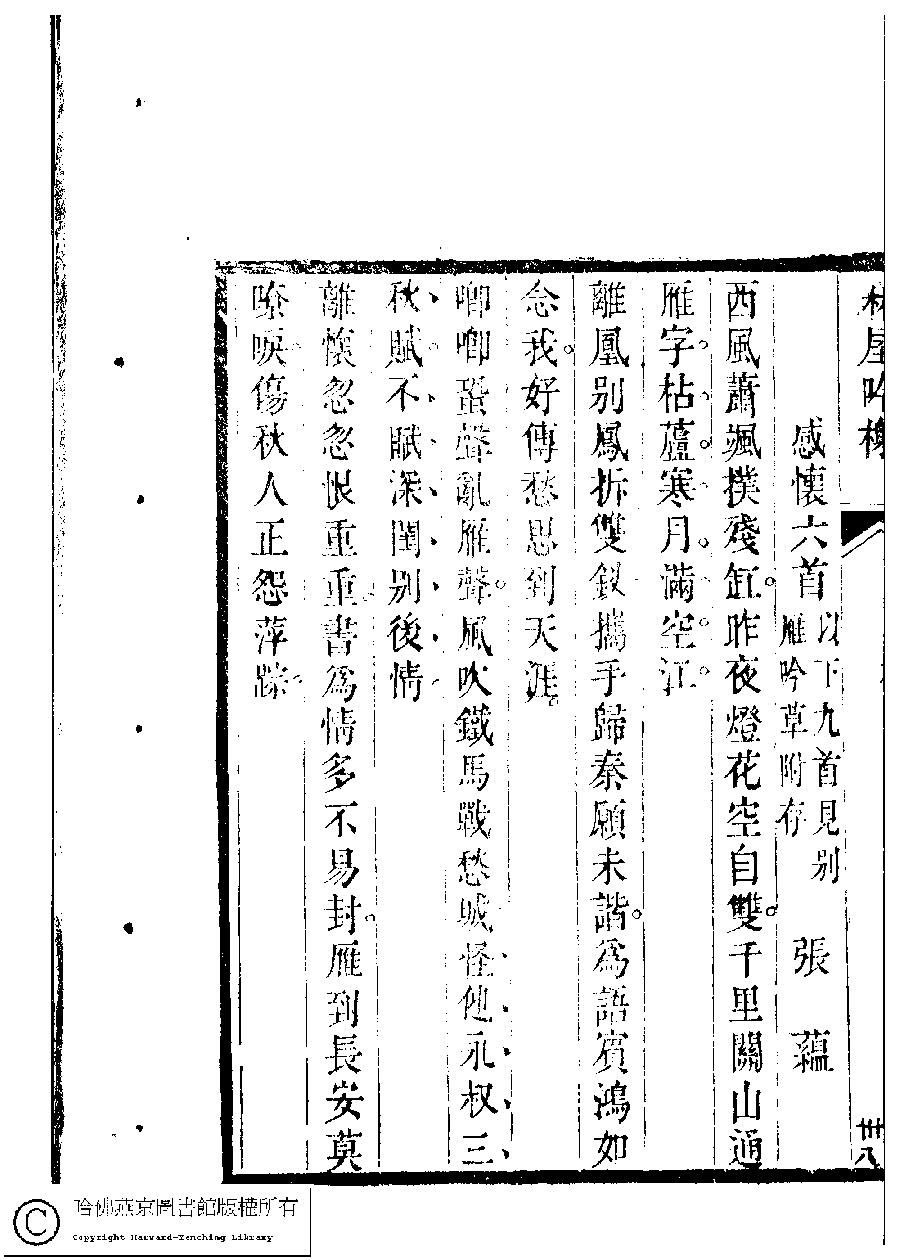 林屋吟榭
卅八
感懷六首 以下九首見別
雁吟草附存 張蘊
西風蕭颯撲殘缸昨夜燈花空自雙千里關山通
雁字枯蘆寒月滿空江
離凰别鳳拆雙釵攜手歸秦願未諧爲語賓鴻如
念我好傳愁思到天涯
唧唧蛩聲亂雁聲風吹鐵馬戰愁城怪他永叔三
秋賦不賦深閨别後情
離懷忽忽恨重重書爲情多不易封雁到長安莫
嘹唳傷秋人正怨萍踪
哈佛燕京圖書館版權所有
Copyright Harvard-Yenching Library